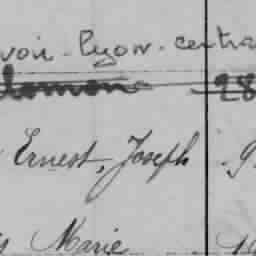 voir Lyon-centra
lomon 28
Ernest, Joseph 9
s Marie 19